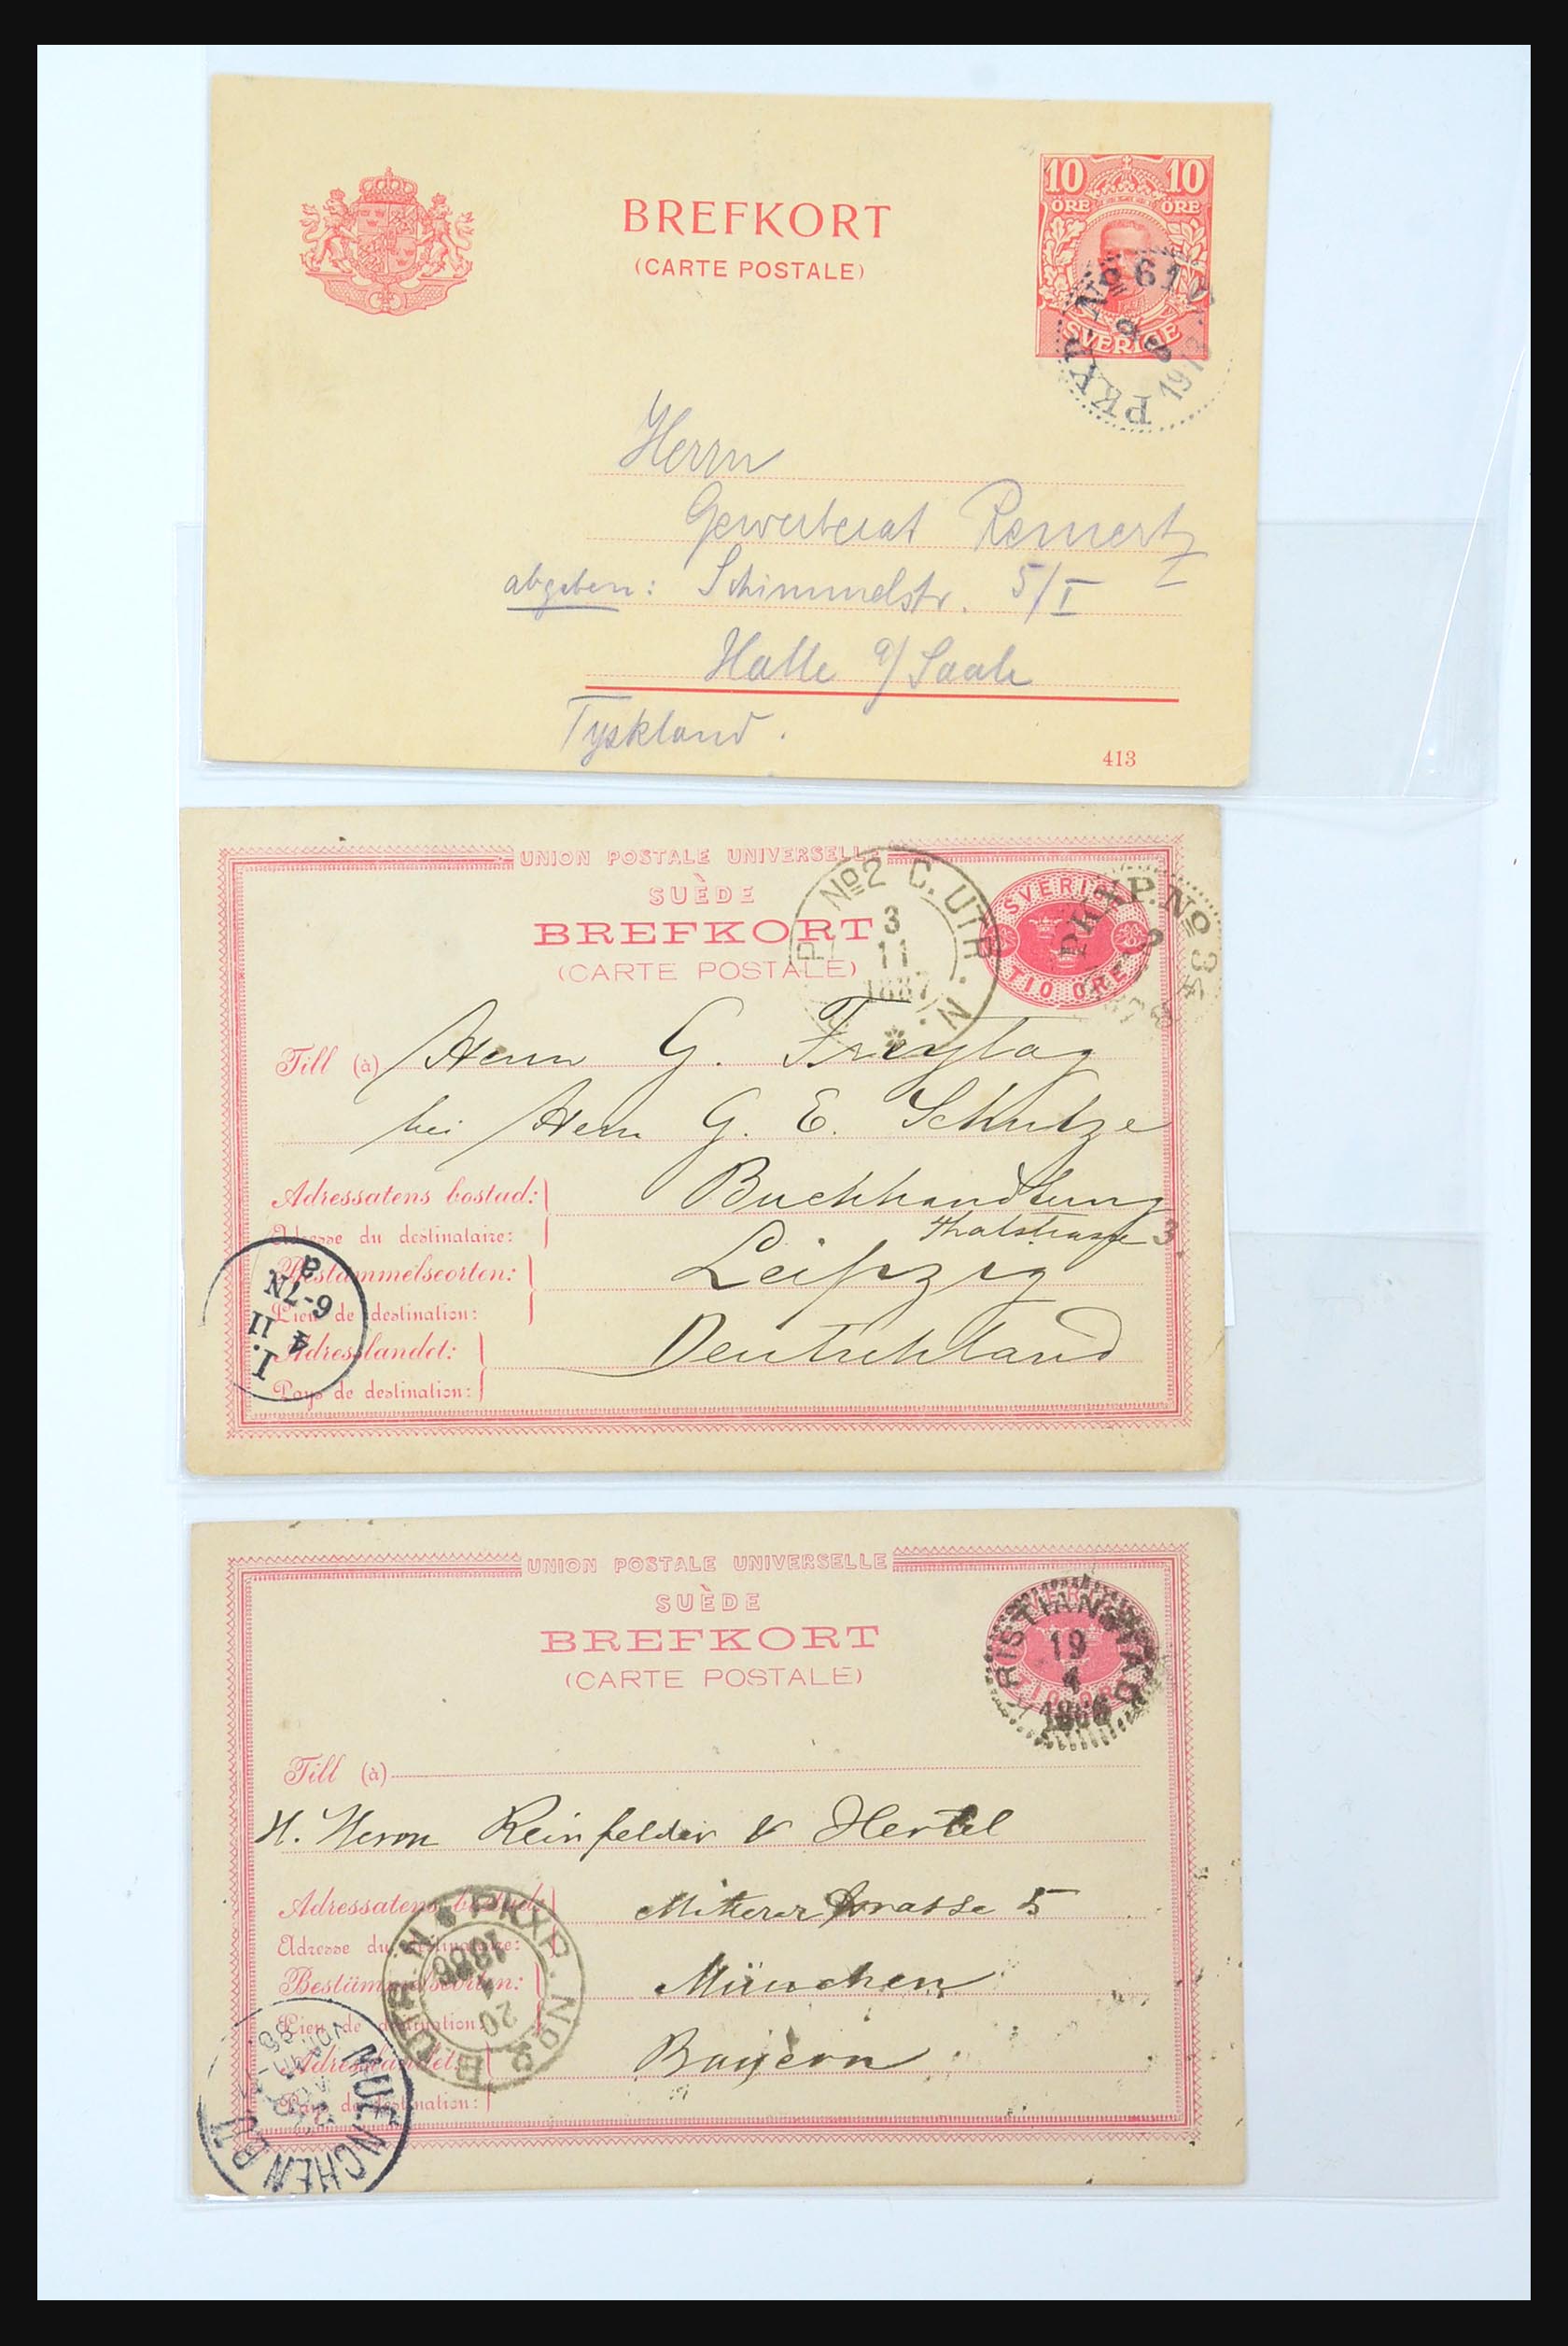 BREFKORT
(CARTE POSTALE)
10 10
ÖRE ÖRE
SVERIGE
PKXP. No 61
9 8
Herrn
Gewerberat Remertz
abgeben: Schimmelstr. 5/I
Halle a/Saale
Tyskland.
413
UNION POSTALE UNIVERSELLE
SUÈDE
BREFKORT
(CARTE POSTALE)
SVERIGE
TIO ÖRE
No 2 C. UTR. N.
3
11
1887
PKXP. No 34
Till (à) Herrn G. Freytag
bei Herrn G. E. Schulze
Adressatens bostad: Buchhandlung
Adresse du destinataire: Thalstrasse 3.
Bestämmelseorten: Leipzig
Lieu de destination:
Adresslandet: Deutschland
Pays de destination:
I.
4 11
6-7N
a
UNION POSTALE UNIVERSELLE
SUÈDE
BREFKORT
(CARTE POSTALE)
TIO ÖRE
KRISTIANSTAD
19
4
1886
Till (à)
H. Herrn Reinfelder & Hertel
Adressatens bostad: Mitterer Strasse 5
Adresse du destinataire:
Bestämmelseorten: München
Lieu de destination:
Adresslandet: Bayern
Pays de destination:
PKXP. No 2 B UTR. N
20
4
1886
MUENCHEN